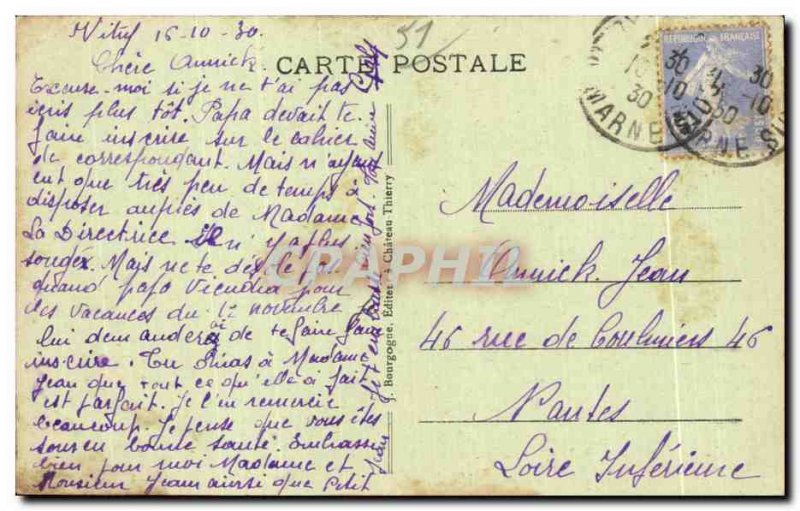 Vitry 16-10-30
Chère Annick.
Excuse-moi si je ne t'ai pas
écris plus tôt. Papa devait te
faire inscrire sur le cahier
de correspondant. Mais n'ayant
que très peu de temps à
disposer auprès de Madame
La Directrice il n'y a plus
songé. Mais ne te désole pas
quand papa viendra pour
des vacances du 1er novembre
lui demandera de te faire
inscrire. Tu diras à Madame
Jean que tout ce qu'elle a fait
est parfait. Je l'en remercie
beaucoup. Je pense que vous êtes
tous en bonne santé. Embrasse
bien pour moi Madame et
Monsieur Jean ainsi que Petit
Jean
51
CARTE POSTALE
J. Bourgogne, Editeur à Château Thierry
CPAPHIL
REPUBLIQUE FRANÇAISE
MARNE
30
Mademoiselle
Annick Jean
46 rue de Coulmiers 46
Nantes
Loire Inférieure